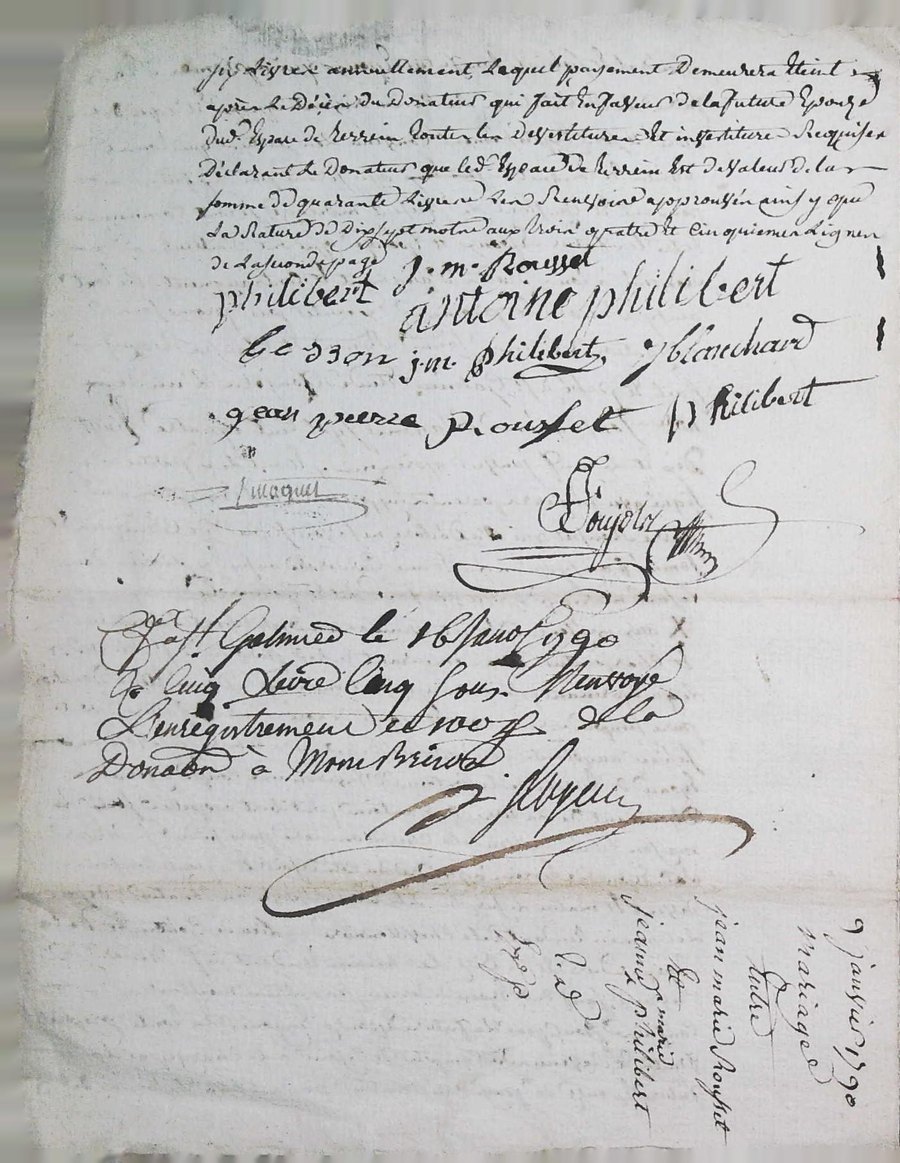 six Livres annuellement, Lequel payement Demeurera Eteint
apres Le Décès Du Donateur qui fait En faveur De la future Epouze
dud. Espace de terrein toutes les devestitures Et investiture Requises
Déclarant Le Donateur que led. Espace de terrein Est de valeur de la
somme de quarante Livres Les Renvois approuvés ainsy que
La Rature de Dix sept mots aux trois quatre Et cinquieme Lignes
de La seconde page
philibert j. m. Rousset
antoine philibert
besson j. m. philibert j blanchard
jean pierre Rousset philibert
St. Galmier le 16 Janv. 1790
cinq Livre cinq sous Renvoyé
L'enregistrement de la
Donaon à Montbrison
9 janvier 1790
mariage
Entre
jean marie Rousset
Et
jeanne marie philibert